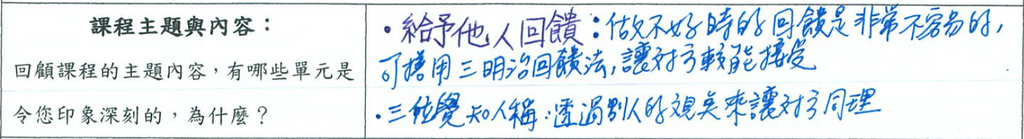 課程主題與內容：
回顧課程的主題內容，有哪些單元是
令您印象深刻的，為什麼？
・給予他人回饋：做不好時的回饋是非常不容易的，
可善用三明治回饋法，讓對方較能接受
・三位覺知人稱：透過別人的視美來讓對方同理